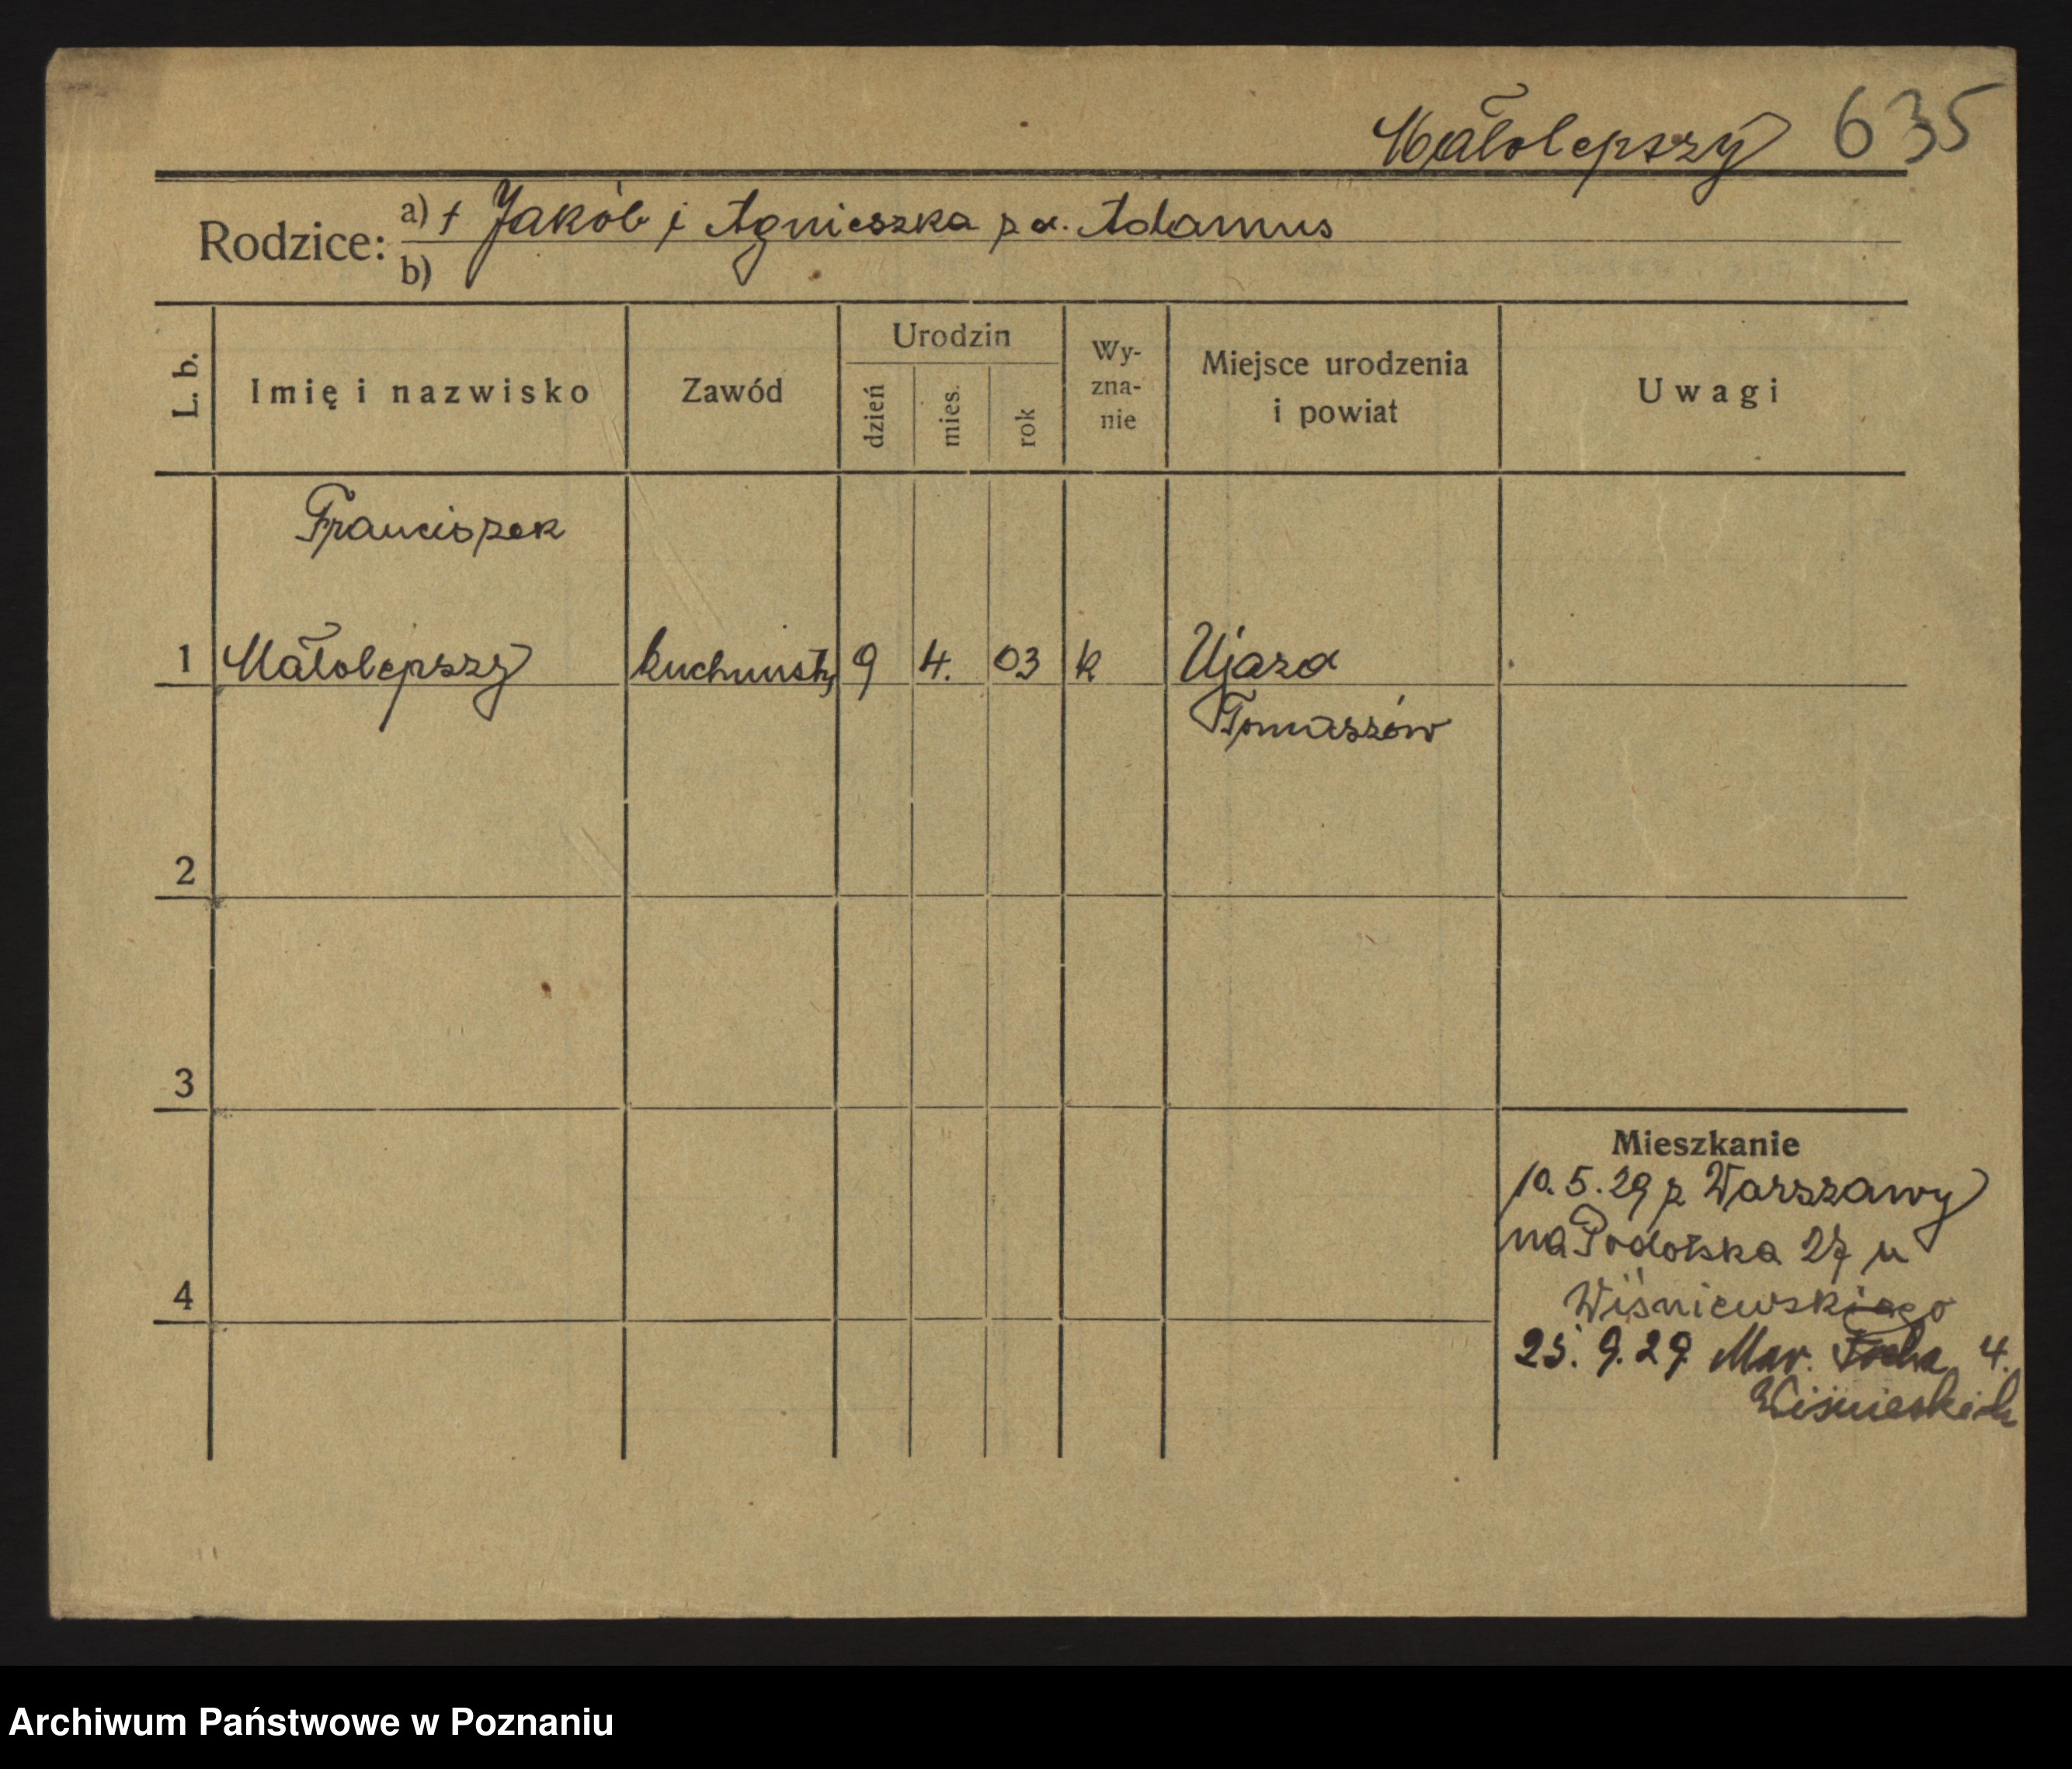 Małolepszy 635
Rodzice: a) + Jakób i Agnieszka z d. Adamus
b)
L. b. Imię i nazwisko Zawód Urodzin dzień mies. rok Wy-zna-nie Miejsce urodzenia i powiat Uwagi
Franciszek
1 Małolepszy kuchmistrz 9 4. 03 k Ujazd
Tomaszów
2
3
Mieszkanie
10.5.29 z Warszawy
na Podolska 27 u
4 Wiśniewskiego
25. 9. 29 Mar. Focha 4.
Archiwum Państwowe w Poznaniu